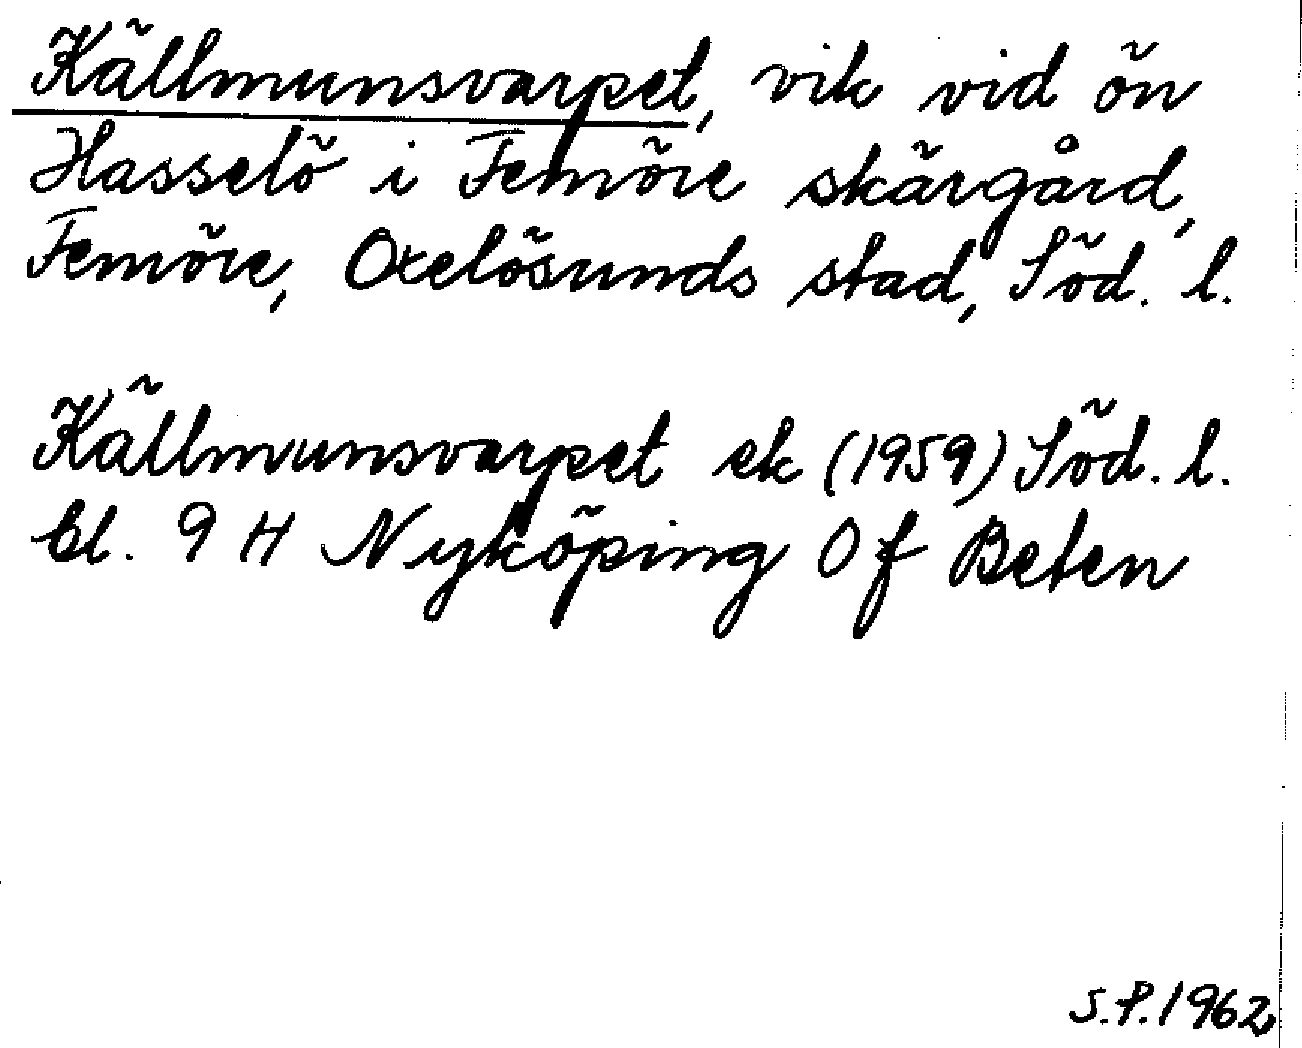 Källmunsvarpet, vik vid ön
Hasselö i Femöre skärgård,
Femöre, Oxelösunds stad, Söd. l.
Källmunsvarpet ek (1959) Söd. l.
bl. 9 H Nyköping 0 f Beten
S.P. 1962